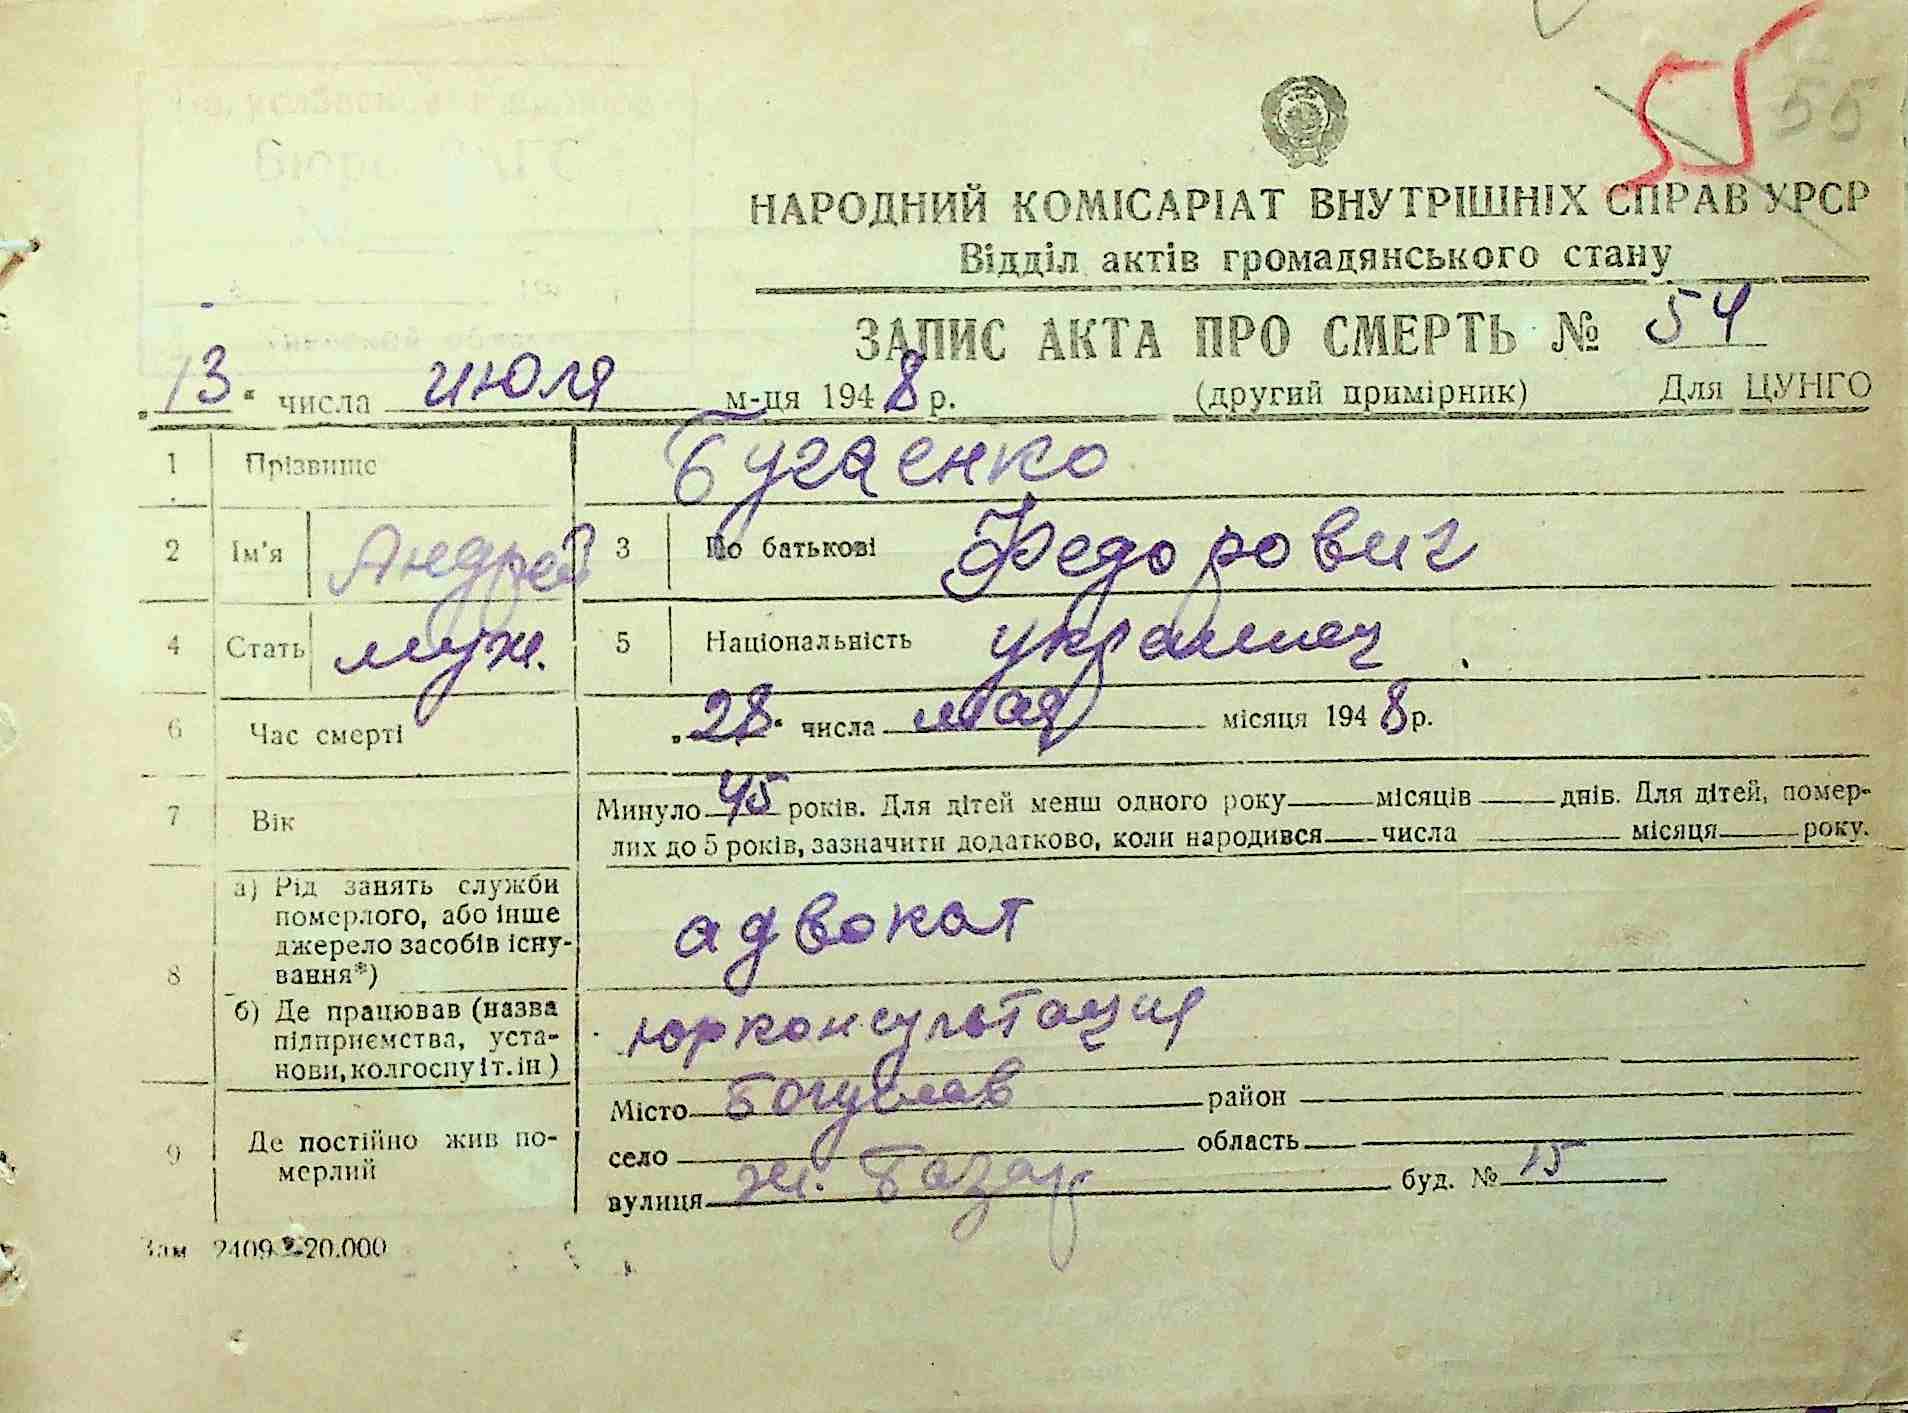 55
55
НАРОДНИЙ КОМІСАРІАТ ВНУТРІШНІХ СПРАВ УРСР
Відділ актів громадянського стану
ЗАПИС АКТА ПРО СМЕРТЬ № 54
„13“ числа июля м-ця 1948 р. (другий примірник) Для ЦУНГО
1 Прізвище Бугаенко
2 Ім'я Андрей 3 По батькові Федорович
4 Стать муж. 5 Національність украинец
6 Час смерті „28“ числа мая місяця 1948 р.
7 Вік Минуло 45 років. Для дітей менш одного року місяців днів. Для дітей, помер-
лих до 5 років, зазначити додатково, коли народився числа місяця року.
8 а) Рід занять служби померлого, або інше джерело засобів існу-вання*) адвокат
б) Де працював (назва підприємства, уста-нови, колгоспу і т. ін) юрконсультация
9 Де постійно жив по-мерлий Місто Богуслав район
село область
вулиця ж. Базар буд. № 15
Зам 2409 20.000